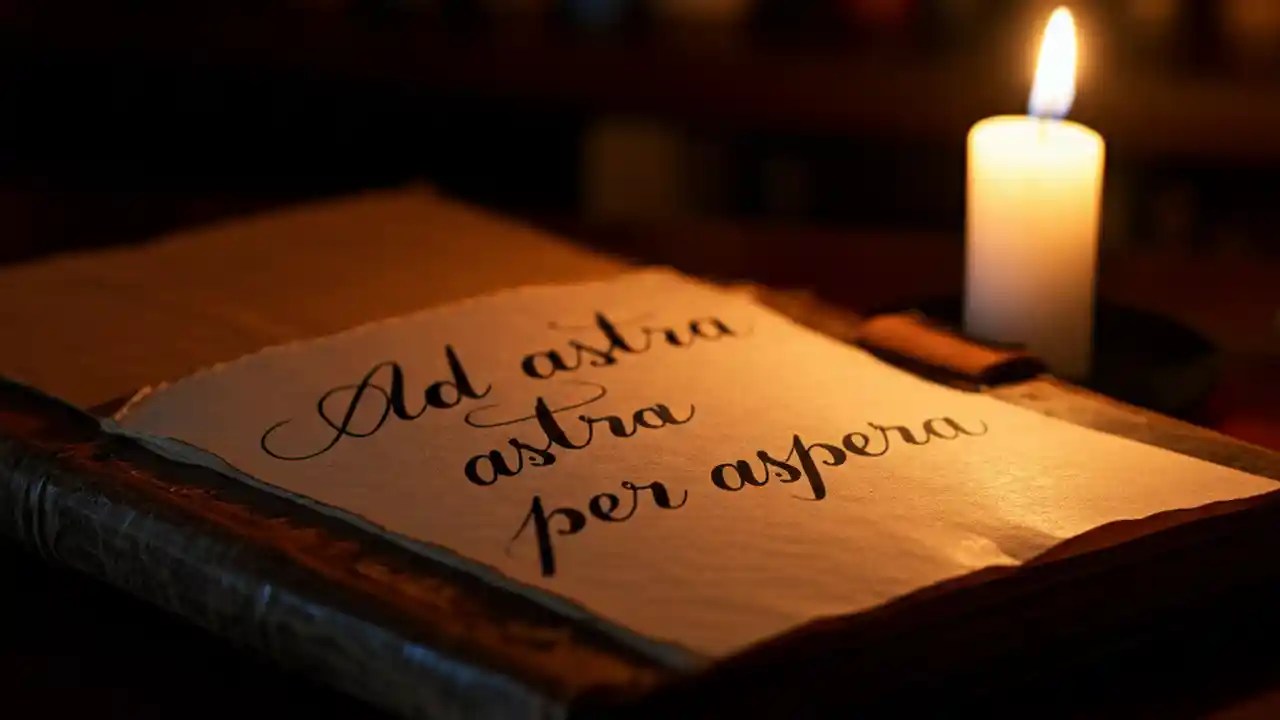 Ad astra
astra
per aspera